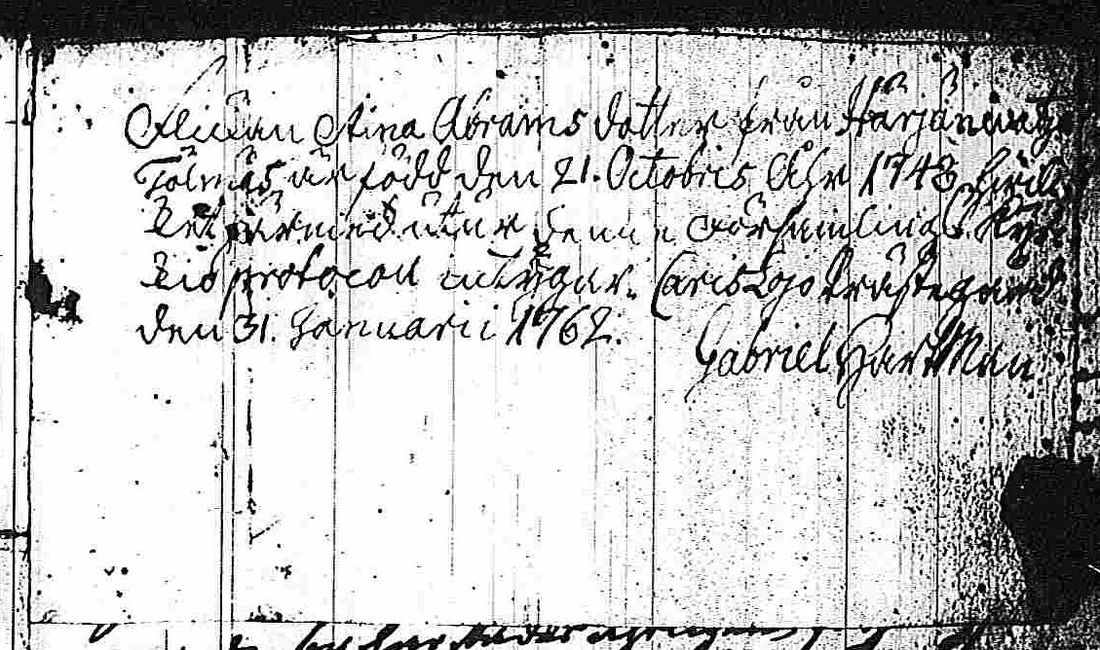 Flickan Stina Abrams dotter från Härjänwatz
Tölmäs är född den 21. Octobris Åhr 1743 hwil
ket härmed utur denne Församlings Kyr
kio protocoll intygar. Carislojo Prästegård
den 31. Januarii 1762.
Gabriel HartMan